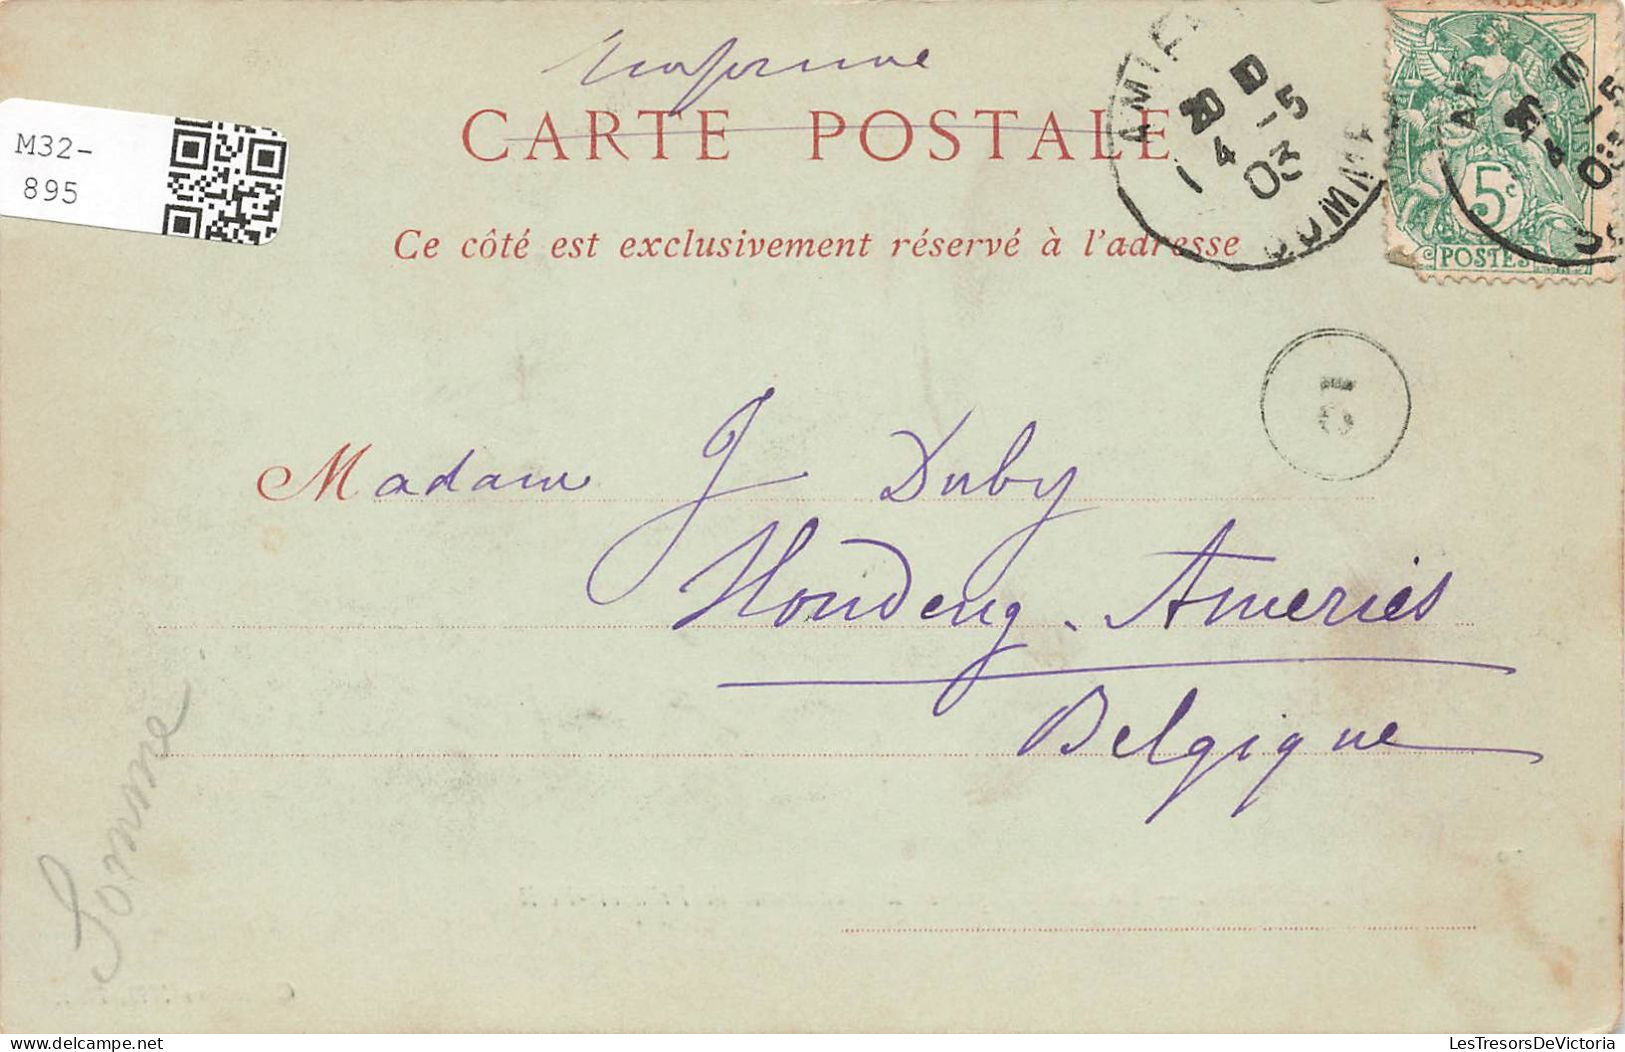 Imprimé
CARTE POSTALE
Ce côté est exclusivement réservé à l'adresse
M32-
895
AMIENS
4 -5
03
SOMME
5c
POSTES
4 -5
03
Madame J Duby
Houdeng-Aimeries
Belgique
Somme
Delcampe.net
LesTresorsDeVictoria